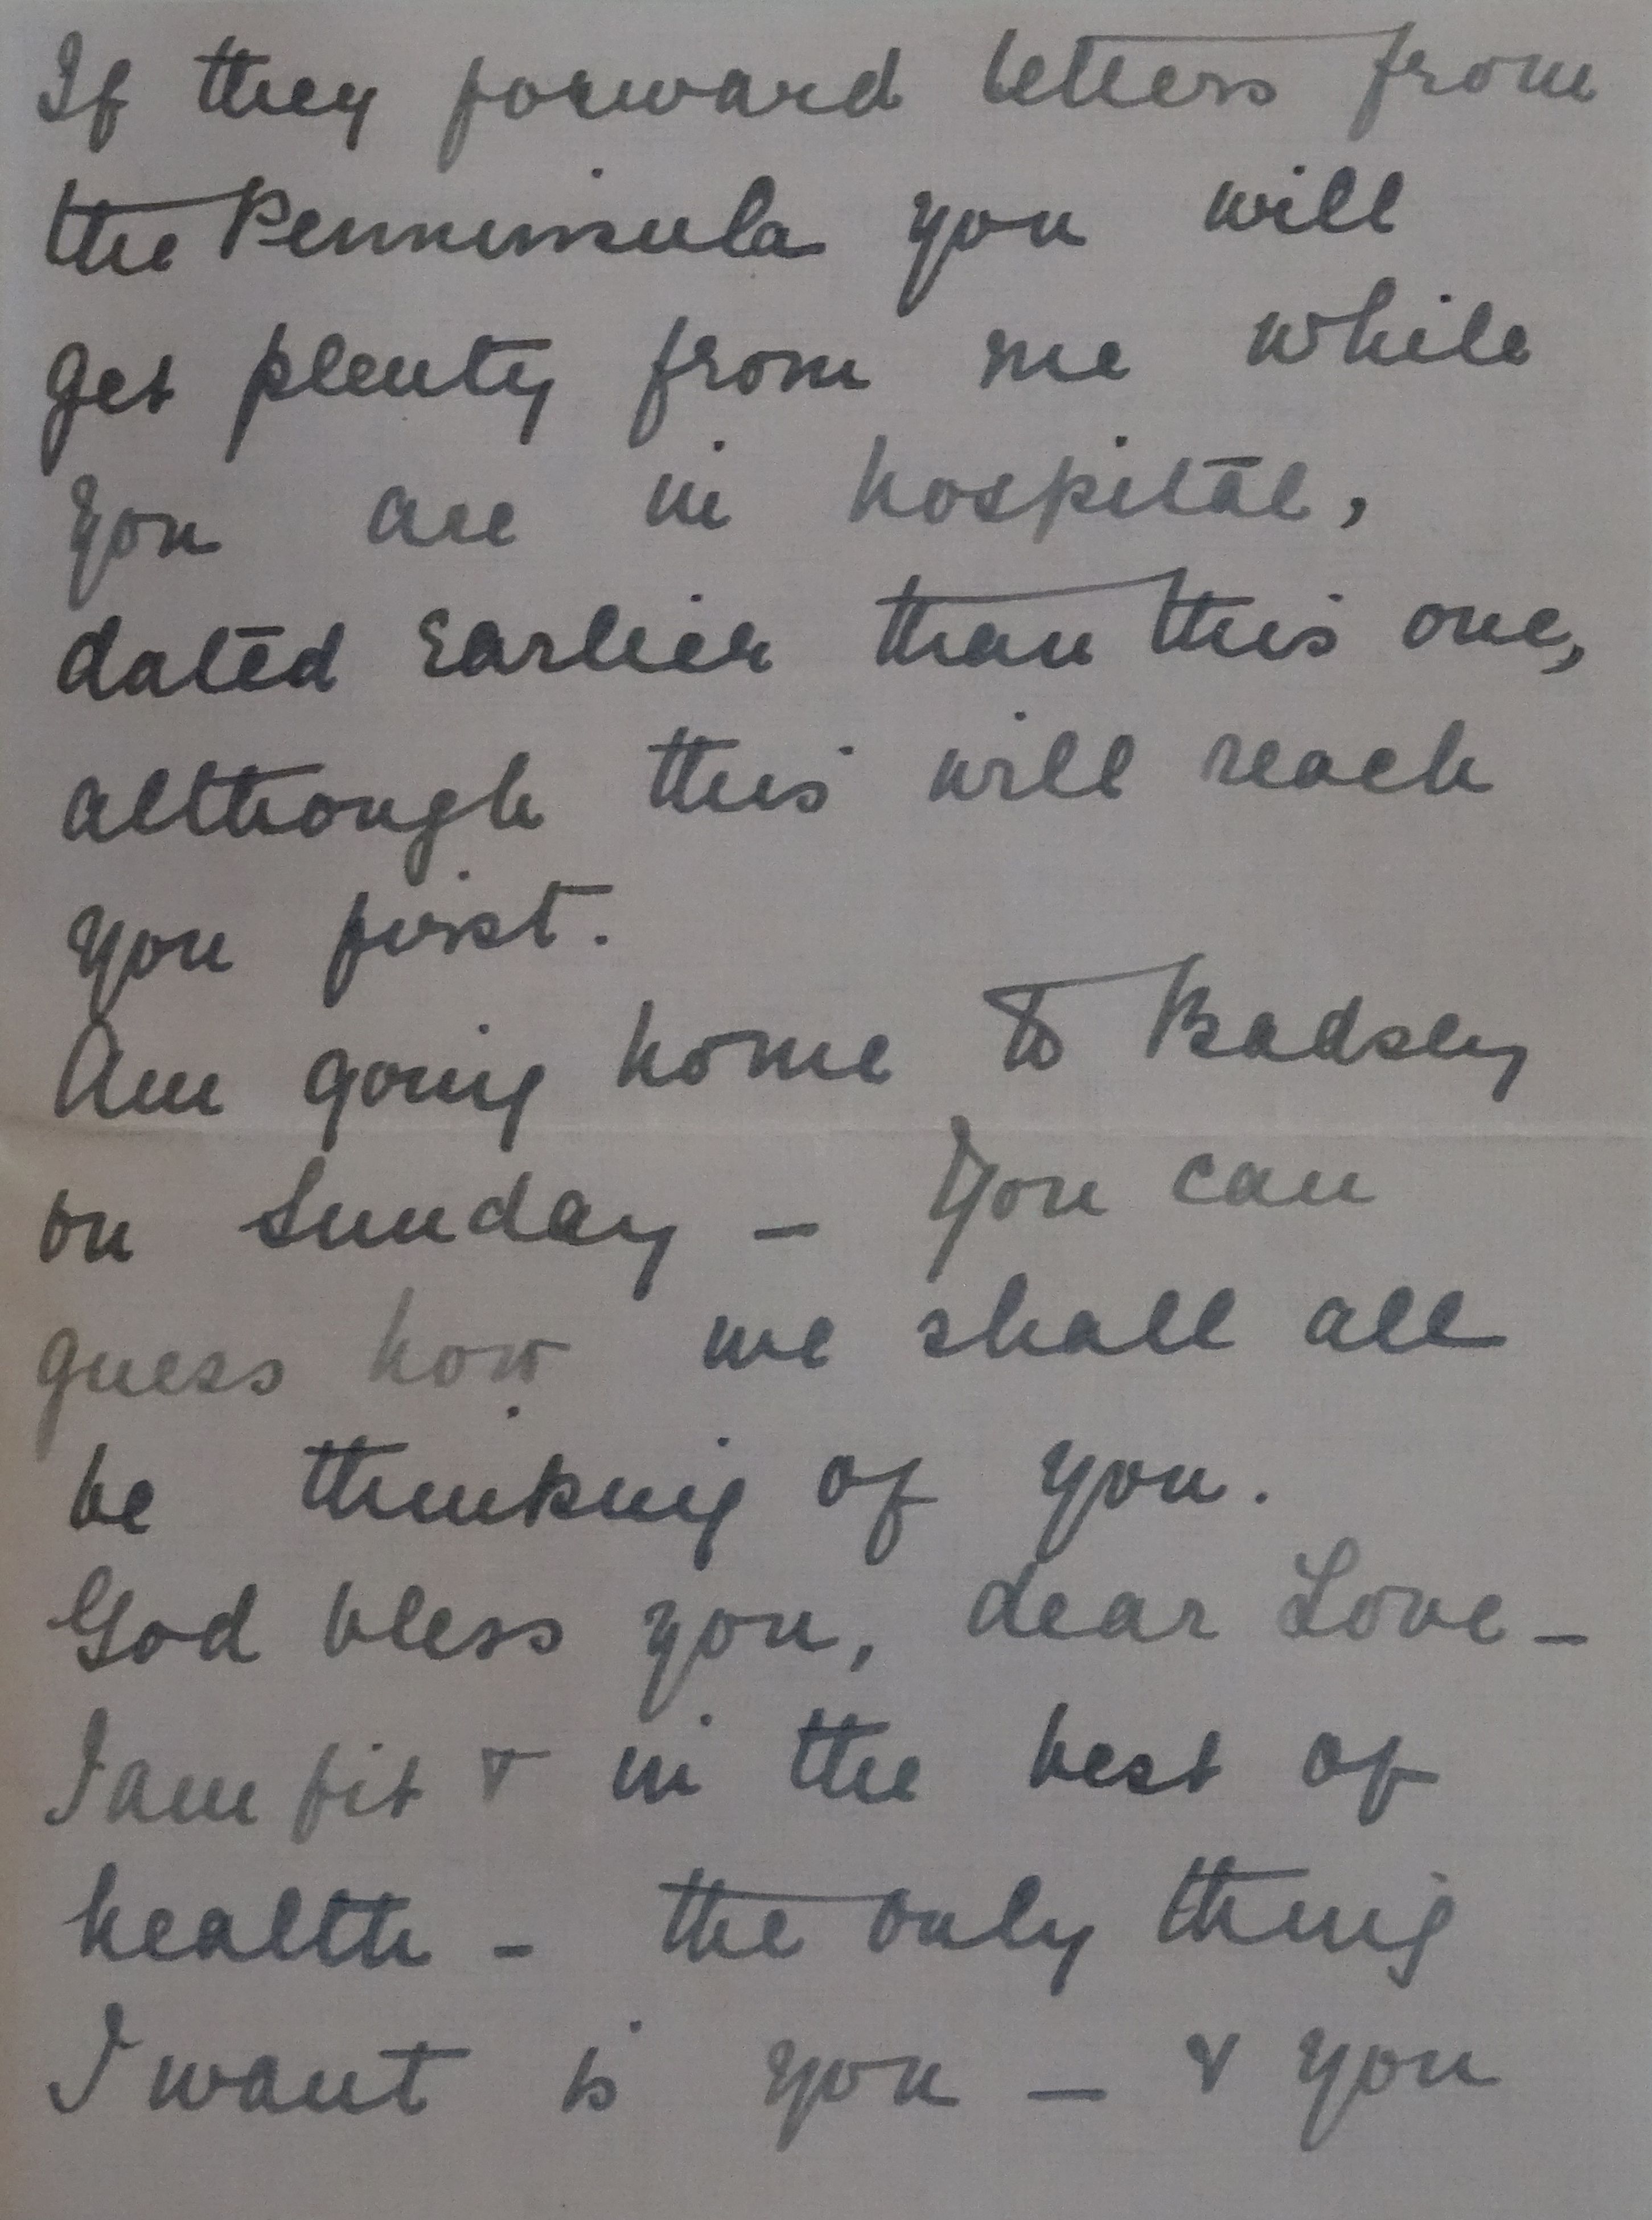 If they forward letters from
the Penninsula you will
get plenty from me while
you are in hospital,
dated earlier than this one,
although this will reach
you first.
Am going home to Badsey
on Sunday – You can
guess how we shall all
be thinking of you.
God bless you, dear Love –
I am fit & in the best of
health – the only thing
I want is you – & you